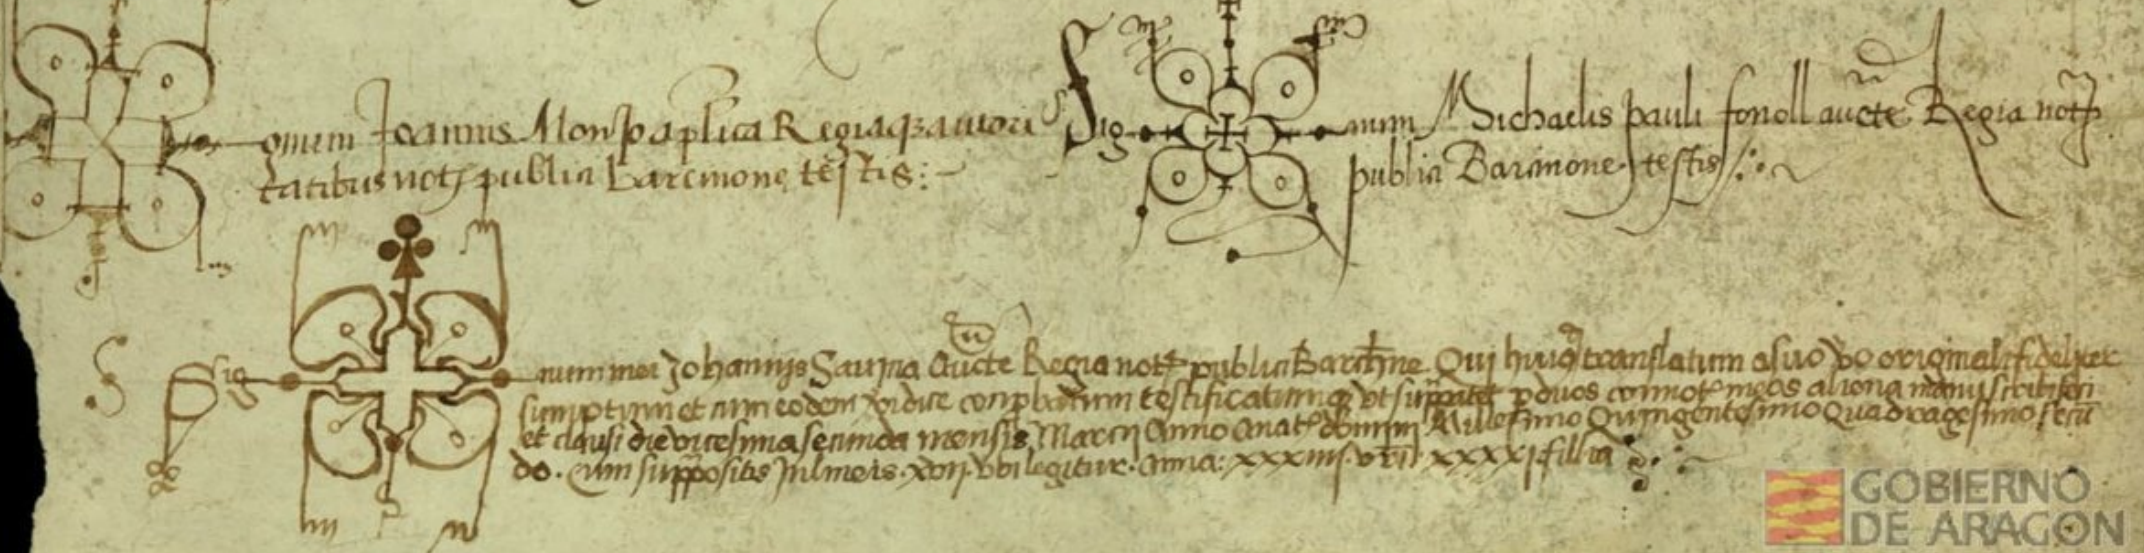 gnum Joannis Monso aplica Regiaq; auctori
tatibus not; publici barcinone, testis:~
Sig num Michaelis Pauli fonoll aucte Regia not;
publici Barcinone testis
Sig num mei Johannis Savina Aucte Regia not publici Barchne Qui huiq translatum a suo vo originali fideliter
sumptum et cum eodem vidice conprbatum testificatumq ut supra patet p duos connot meos aliena manu scribi feci
et clausi die vicesima secunda mensis Marcij Anno a nat domini Millesimo Quingentesimo Quadragesimo secu
do. Cum suppositis in lineis xvij ubi legitur. anna:
GOBIERNO
DE ARAGON